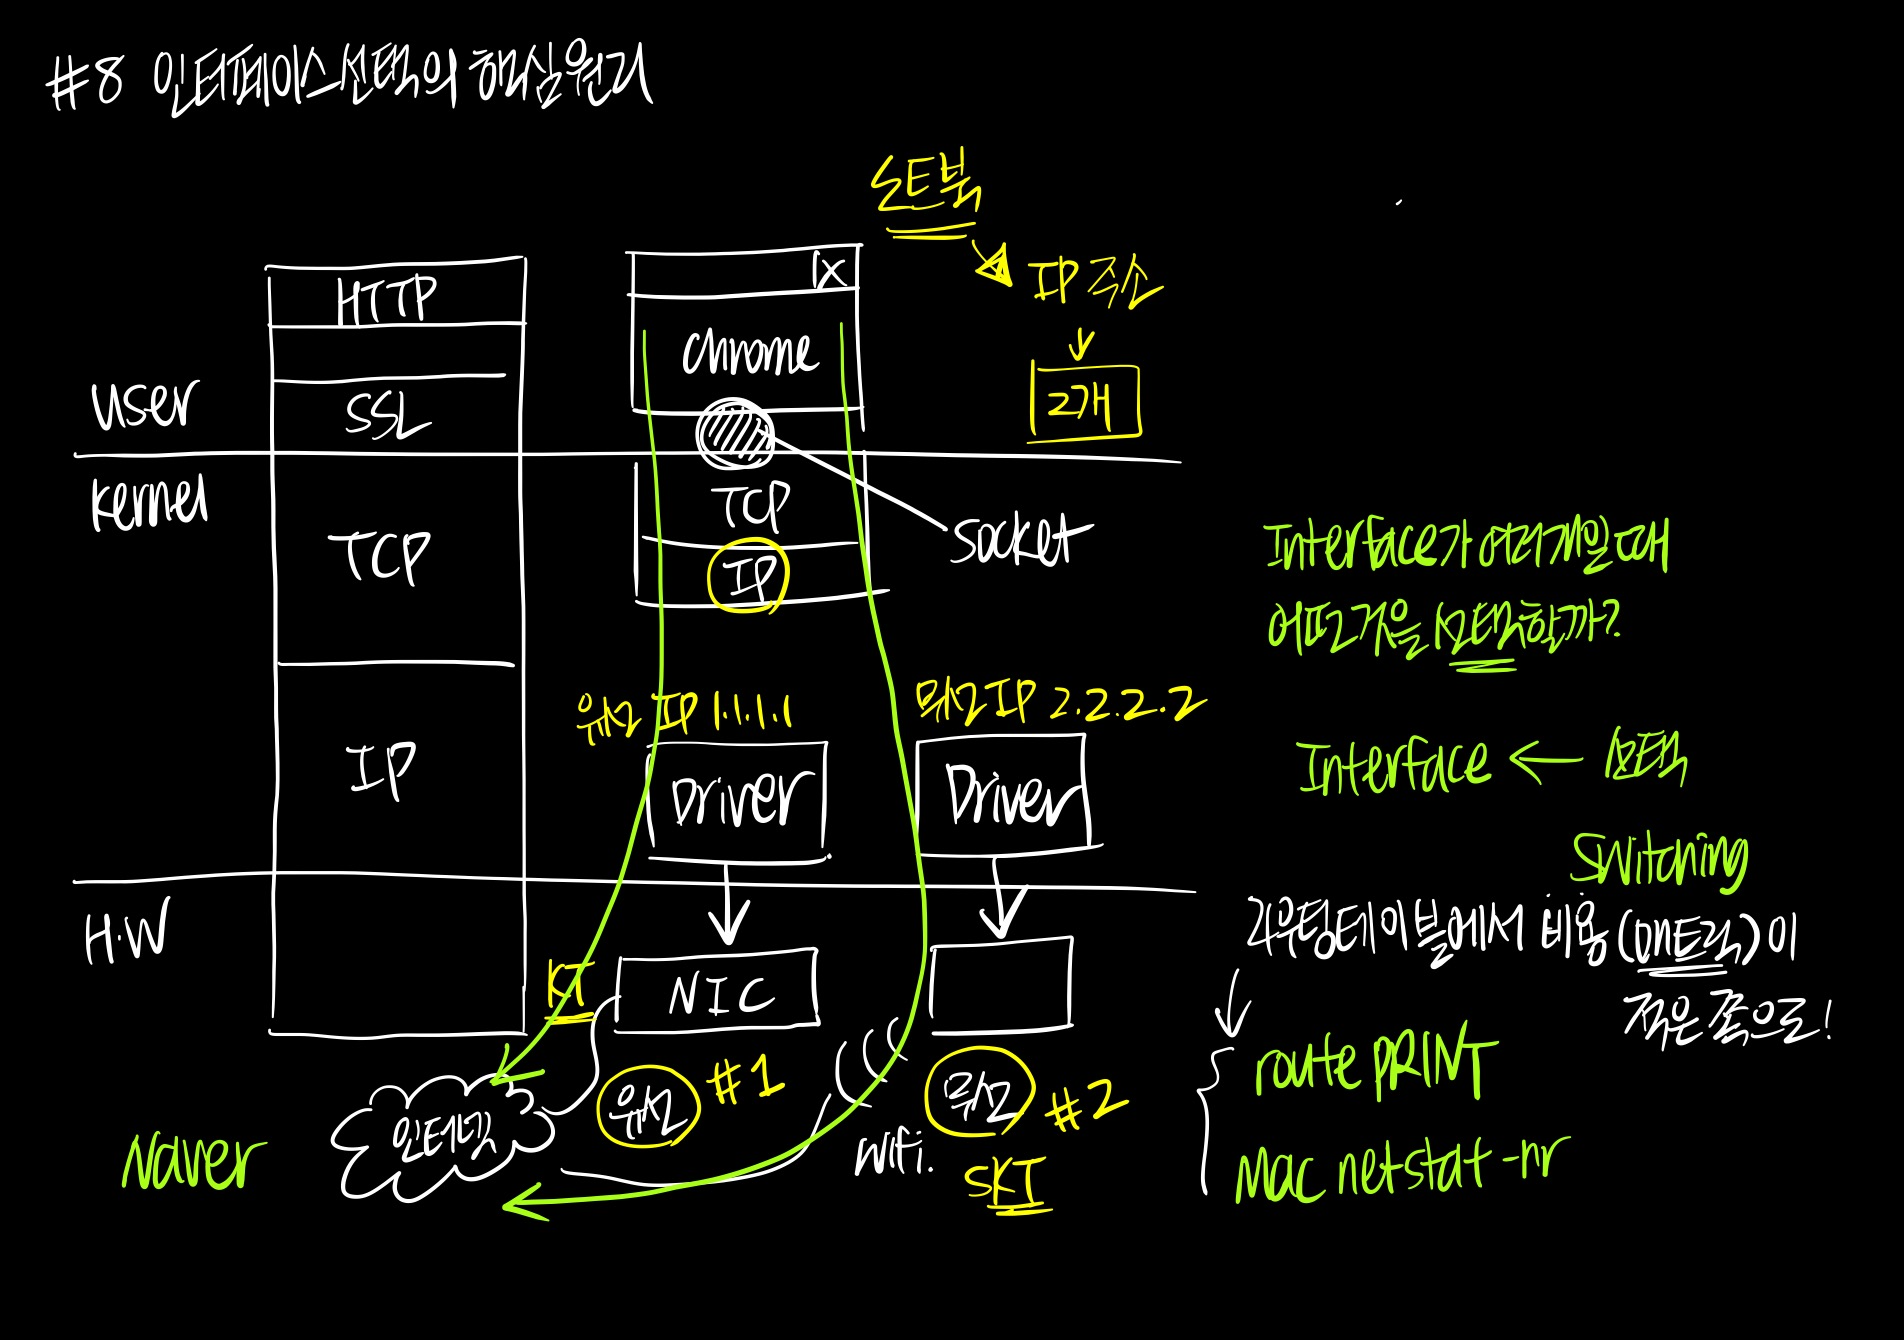 #8 인터페이스 선택의 핵심 원리
노트북
IP 주소
2개
HTTP
SSL
TCP
IP
User
Kernel
H.W
X
Chrome
TCP
IP
Socket
유선 IP 1.1.1.1
무선 IP 2.2.2.2
Driver
Driver
KT
NIC
유선 #1
무선 #2
Wifi.
SKT
인터넷
Naver
Interface가 여러개일 때
어떤 것을 선택할까?
Interface ← 선택
Switching
라우팅 테이블에서 비용 (메트릭)이
적은 쪽으로!
route PRINT
Mac netstat -nr